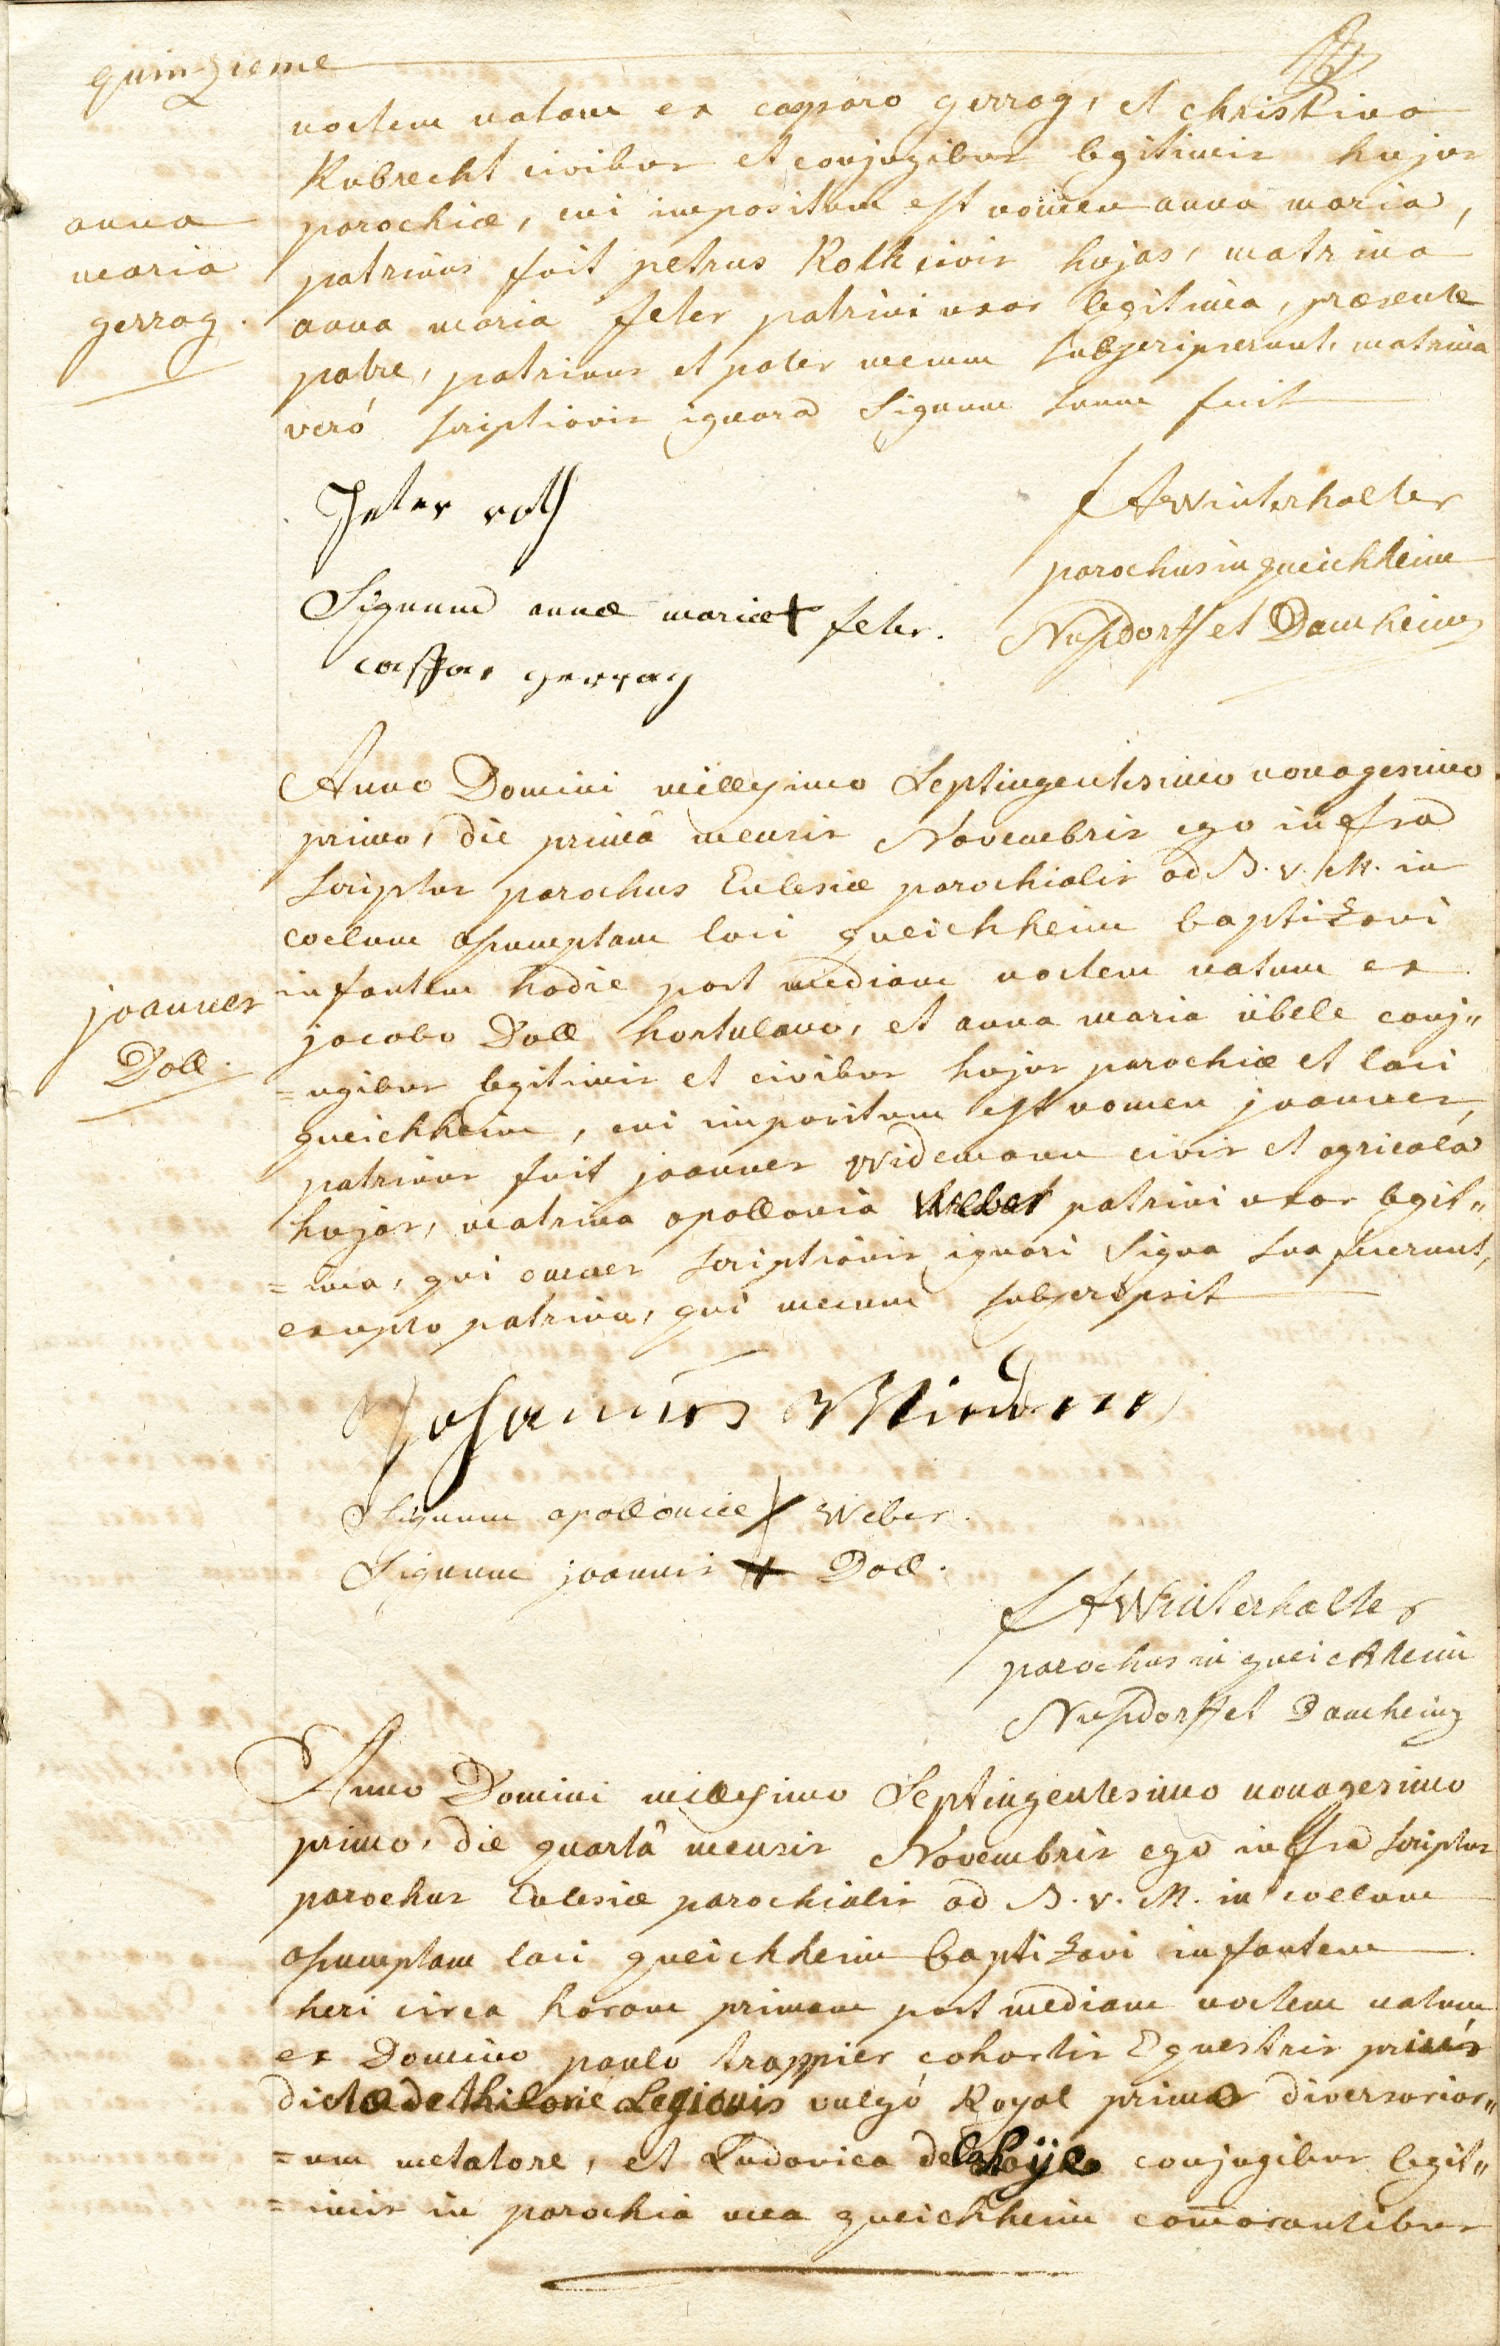 quinzieme
noctem natam ex casparo gerrag, et christina
Rubrecht civibus et conjugibus legitimis hujus
parochiæ, cui impositum est nomen anna maria,
patrinus fuit petrus Roth civis hujas, matrina
anna maria feter patrini uxor legitima, præsente
patre, patrinus et pater mecum subscripserunt, matrina
veró scriptionis ignara Signum suum fecit
anna
maria
gerrag.
Peter roth
Signum annæ mariæ + feter.
casspar gerrag
FA Winterhalter
parochus in queichheim
Nussdorff et Damheim
Anno Domini millesimo Septingentesimo nonagesimo
primo, die primâ mensis Novembris ego infra
scriptus parochus Eclesiæ parochialis ad B. V. M. in
coelum assumptam loci queichheim baptizavi
infantem hodie post mediam noctem natum ex
jacobo Doll hortulano, et anna maria übele conj„
=ugibus legitimis et civibus hujus parochiæ et loci
queichheim, cui impositum est nomen joannes,
patrinus fuit joannes Widemann civis et agricola
hujas, matrina apollonia Weber patrini uxor legit„
=ima, qui omnes scriptionis ignari Signa sua fecerunt,
excepto patrino, qui mecum subscripsit
joannes
Doll.
Johannes
Signum apolloniæ + Weber.
Signum joannis + Doll.
FA Winterhalter
parochus in queichheim
Nussdorff et Damheim
Anno Domini millesimo Septingentesimo nonagesimo
primo, die quartâ mensis Novembris ego infra scriptus
parochus Eclesiæ parochialis ad B. V. M. in coelum
assumptam loci queichheim baptizavi infantem
heri circa horam primam post mediam noctem natum
ex Domino paulo trappier cohortis Equestris
dictæ de Legionis vulgó Royal primæ diversorior„
=um metatore, et Ludovica conjugibus legit„
=imis in parochia mea queichheim com̄orantibus